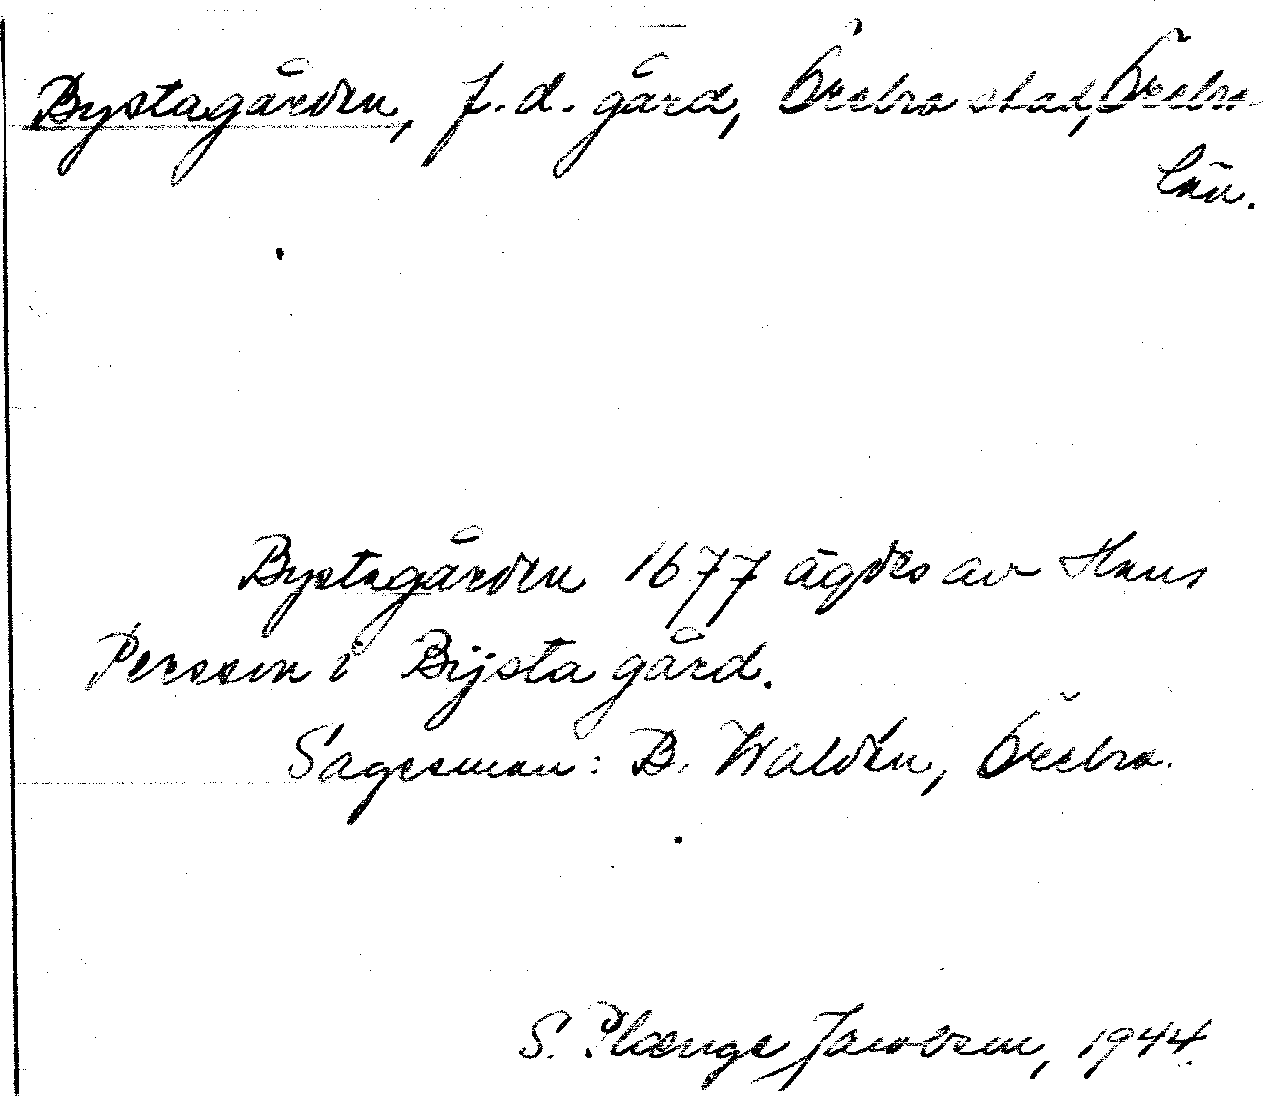 Bystagården, f.d. gård, Örebro stad, Örebro
län.
Bystagården 1677 ägdes av Hans
Persson i Bijsta gård.
Sagesman: B. Waldén, Örebro.
S. Plænge Jacobson, 1944.